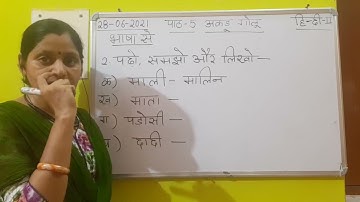 28-06-2021 पाठ-5 अकडू गोलू हिन्दी-II
भाषा से
2. पढो, समझो और लिखो-
क) माली - मालिन
ख) माता -
ग) पडोसी -
घ) दादी -